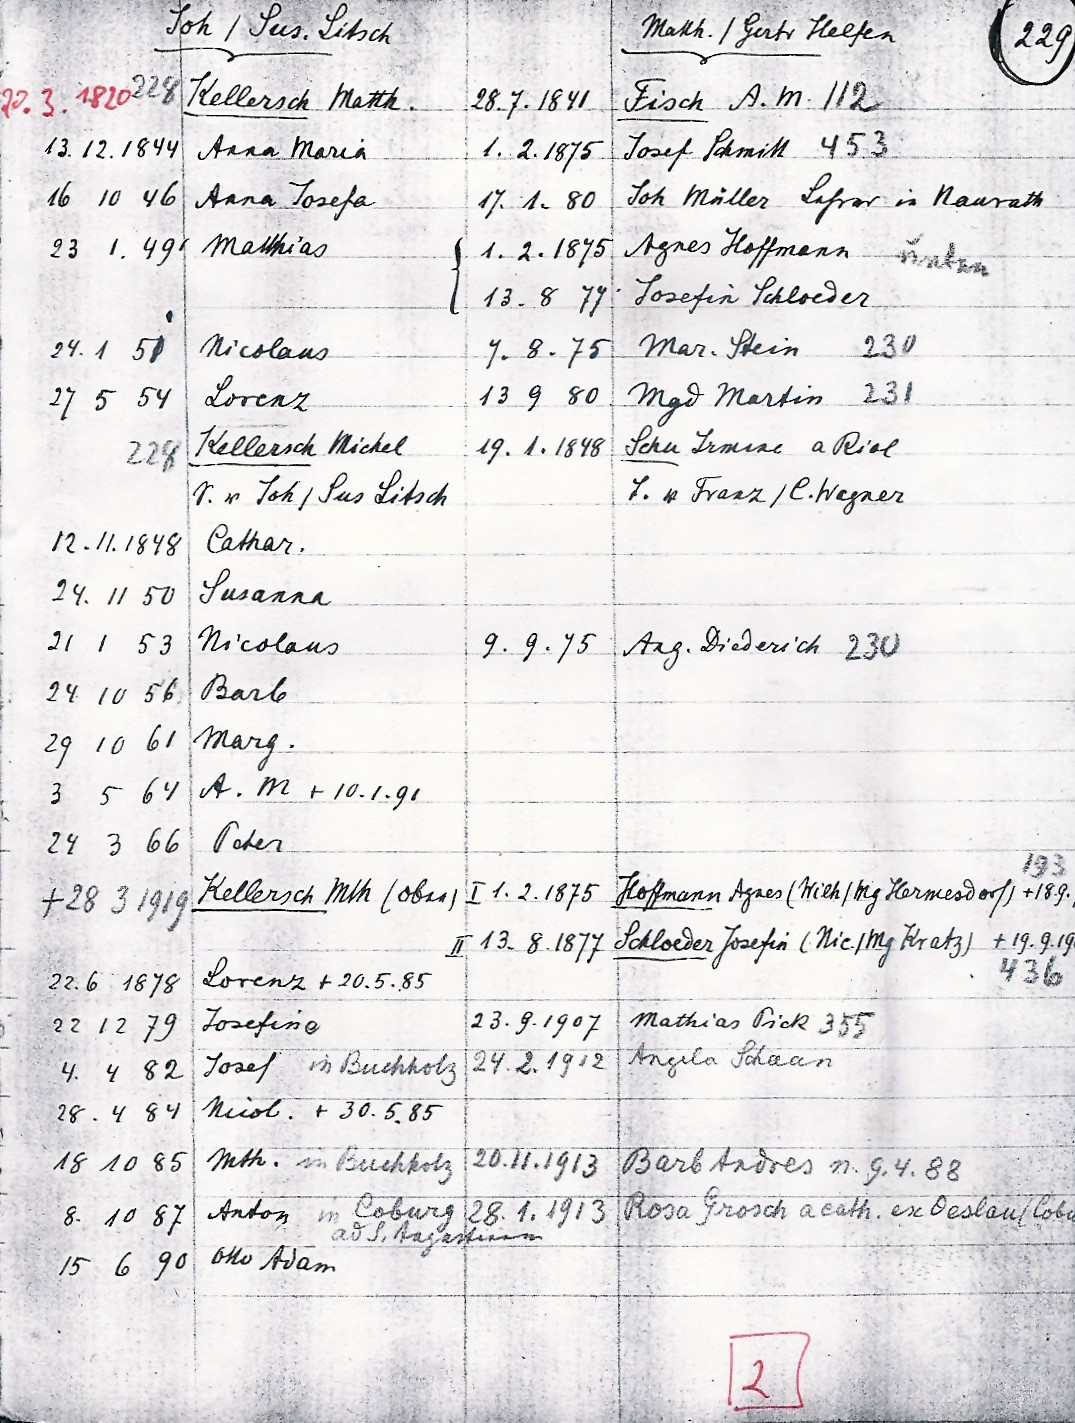 Joh / Sus. Litsch Matth. / Gertr Helfen 229
20.3.1820 228 Kellersch Matth. 28.7.1841 Fisch A.M. 112
13.12.1844 Anna Maria 1.2.1875 Josef Schmitt 453
16 10 46 Anna Josefa 17.1.80 Joh Müller in Naurath
23 1.49 Matthias { 1.2.1875 Agnes Hoffmann unten
13.8 77 Josefin Schloeder
24.1 51 Nicolaus 7.8.75 Mar. Stein 230
27 5 54 Lorenz 13 9 80 Mgd Martin 231
228 Kellersch Michel 19.1.1848 Schu Irmine a Riol
S. v Joh / Sus Litsch T. v Franz / C. Wagner
12.11.1848 Cathar.
24.11 50 Susanna
21 1 53 Nicolaus 9.9.75 Ang. Diederich 230
24 10 56 Barb
29 10 61 Marg.
3 5 64 A. M + 10.1.91
24 3 66 Peter
193
+28 3 1919 Kellersch Mth (oben) I 1.2.1875 Hoffmann Agnes (Wilh/Mg Hermesdorf) +18.9.
II 13.8.1877 Schloeder Josefin (Nic/Mg Kratz) + 19.9.19
436
22.6 1878 Lorenz + 20.5.85
22 12 79 Josefine 23.9.1907 Mathias Pick 355
4. 4 82 Josef in Buchholz 24.2.1912 Angela Schaan
28.4 84 Nicol. + 30.5.85
18 10 85 Mth. in Buchholz 20.11.1913 Barb Andres n. 9.4.88
8. 10 87 Anton in Coburg 28.1.1913 Rosa Grosch acath. ex Oeslau/Cobu
ad S. Augustinum
15 6 90 Otto Adam
2